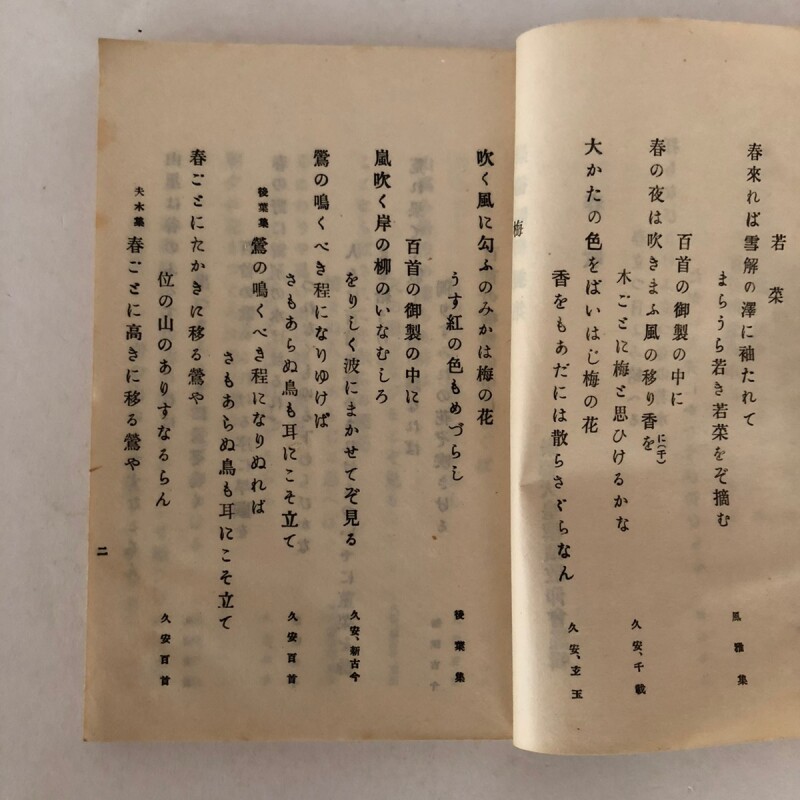 若菜
春來れば雪解の澤に袖たれて
まらうら若き若菜をぞ摘む
風雅集
百首の御製の中に
春の夜は吹きまふ風の移り香を
に(千)
木ごとに梅と思ひけるかな
久安、千載
大かたの色をばいはじ梅の花
香をもあだには散らさゞらなん
久安、玄玉
梅
吹く風に匂ふのみかは梅の花
うす紅の色もめづらし
後葉集
百首の御製の中に
嵐吹く岸の柳のいなむしろ
をりしく波にまかせてぞ見る
久安、新古今
鶯の鳴くべき程になりゆけば
さもあらぬ鳥も耳にこそ立て
久安百首
後葉集 鶯の鳴くべき程になりぬれば
さもあらぬ鳥も耳にこそ立て
春ごとにたかきに移る鶯や
位の山のありすなるらん
久安百首
夫木集 春ごとに高きに移る鶯や
二